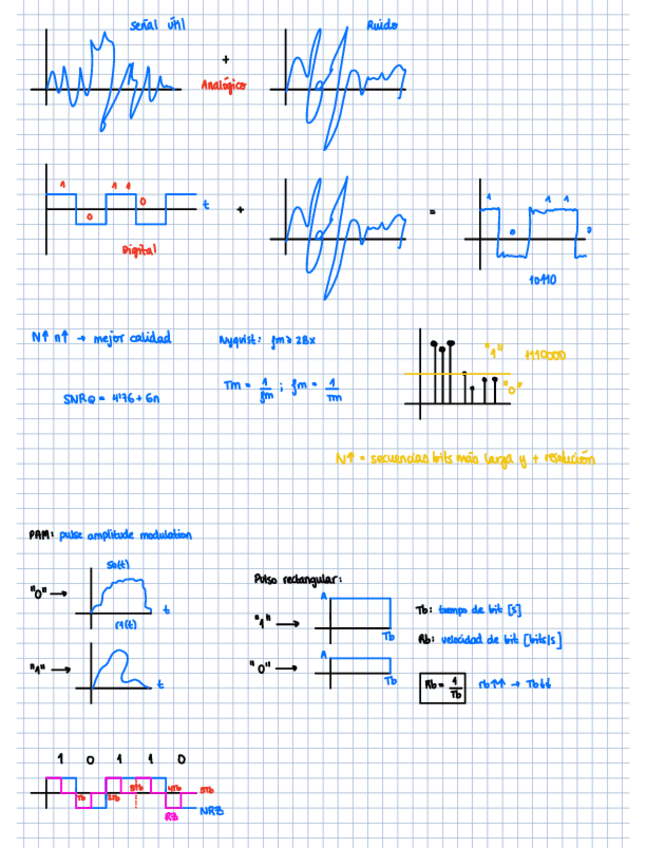 señal útil
Ruido
+
Analógico
1 0 1 1 0
t
+
=
Digital
1 0 1 1 0
10110
N↑ n↑ → mejor calidad
Nyquist: fm ≥ 2Bx
SNRQ = 4'76 + 6n
Tm = 1/fm ; fm = 1/Tm
"1"
1110000
"0"
N↑ = secuencias bits más larga y + resolución
PAM: pulse amplitude modulation
"0" →
so(t)
t
"1" →
t
Pulso rectangular:
"1" →
A
Tb
"0" →
A
Tb
Tb: tiempo de bit [s]
Rb: velocidad de bit [bits/s]
Rb = 1/Tb
rb↑↑ → Tb↓↓
1 0 1 1 0
Tb 2Tb 3Tb 4Tb 5Tb
RZ
NRZ